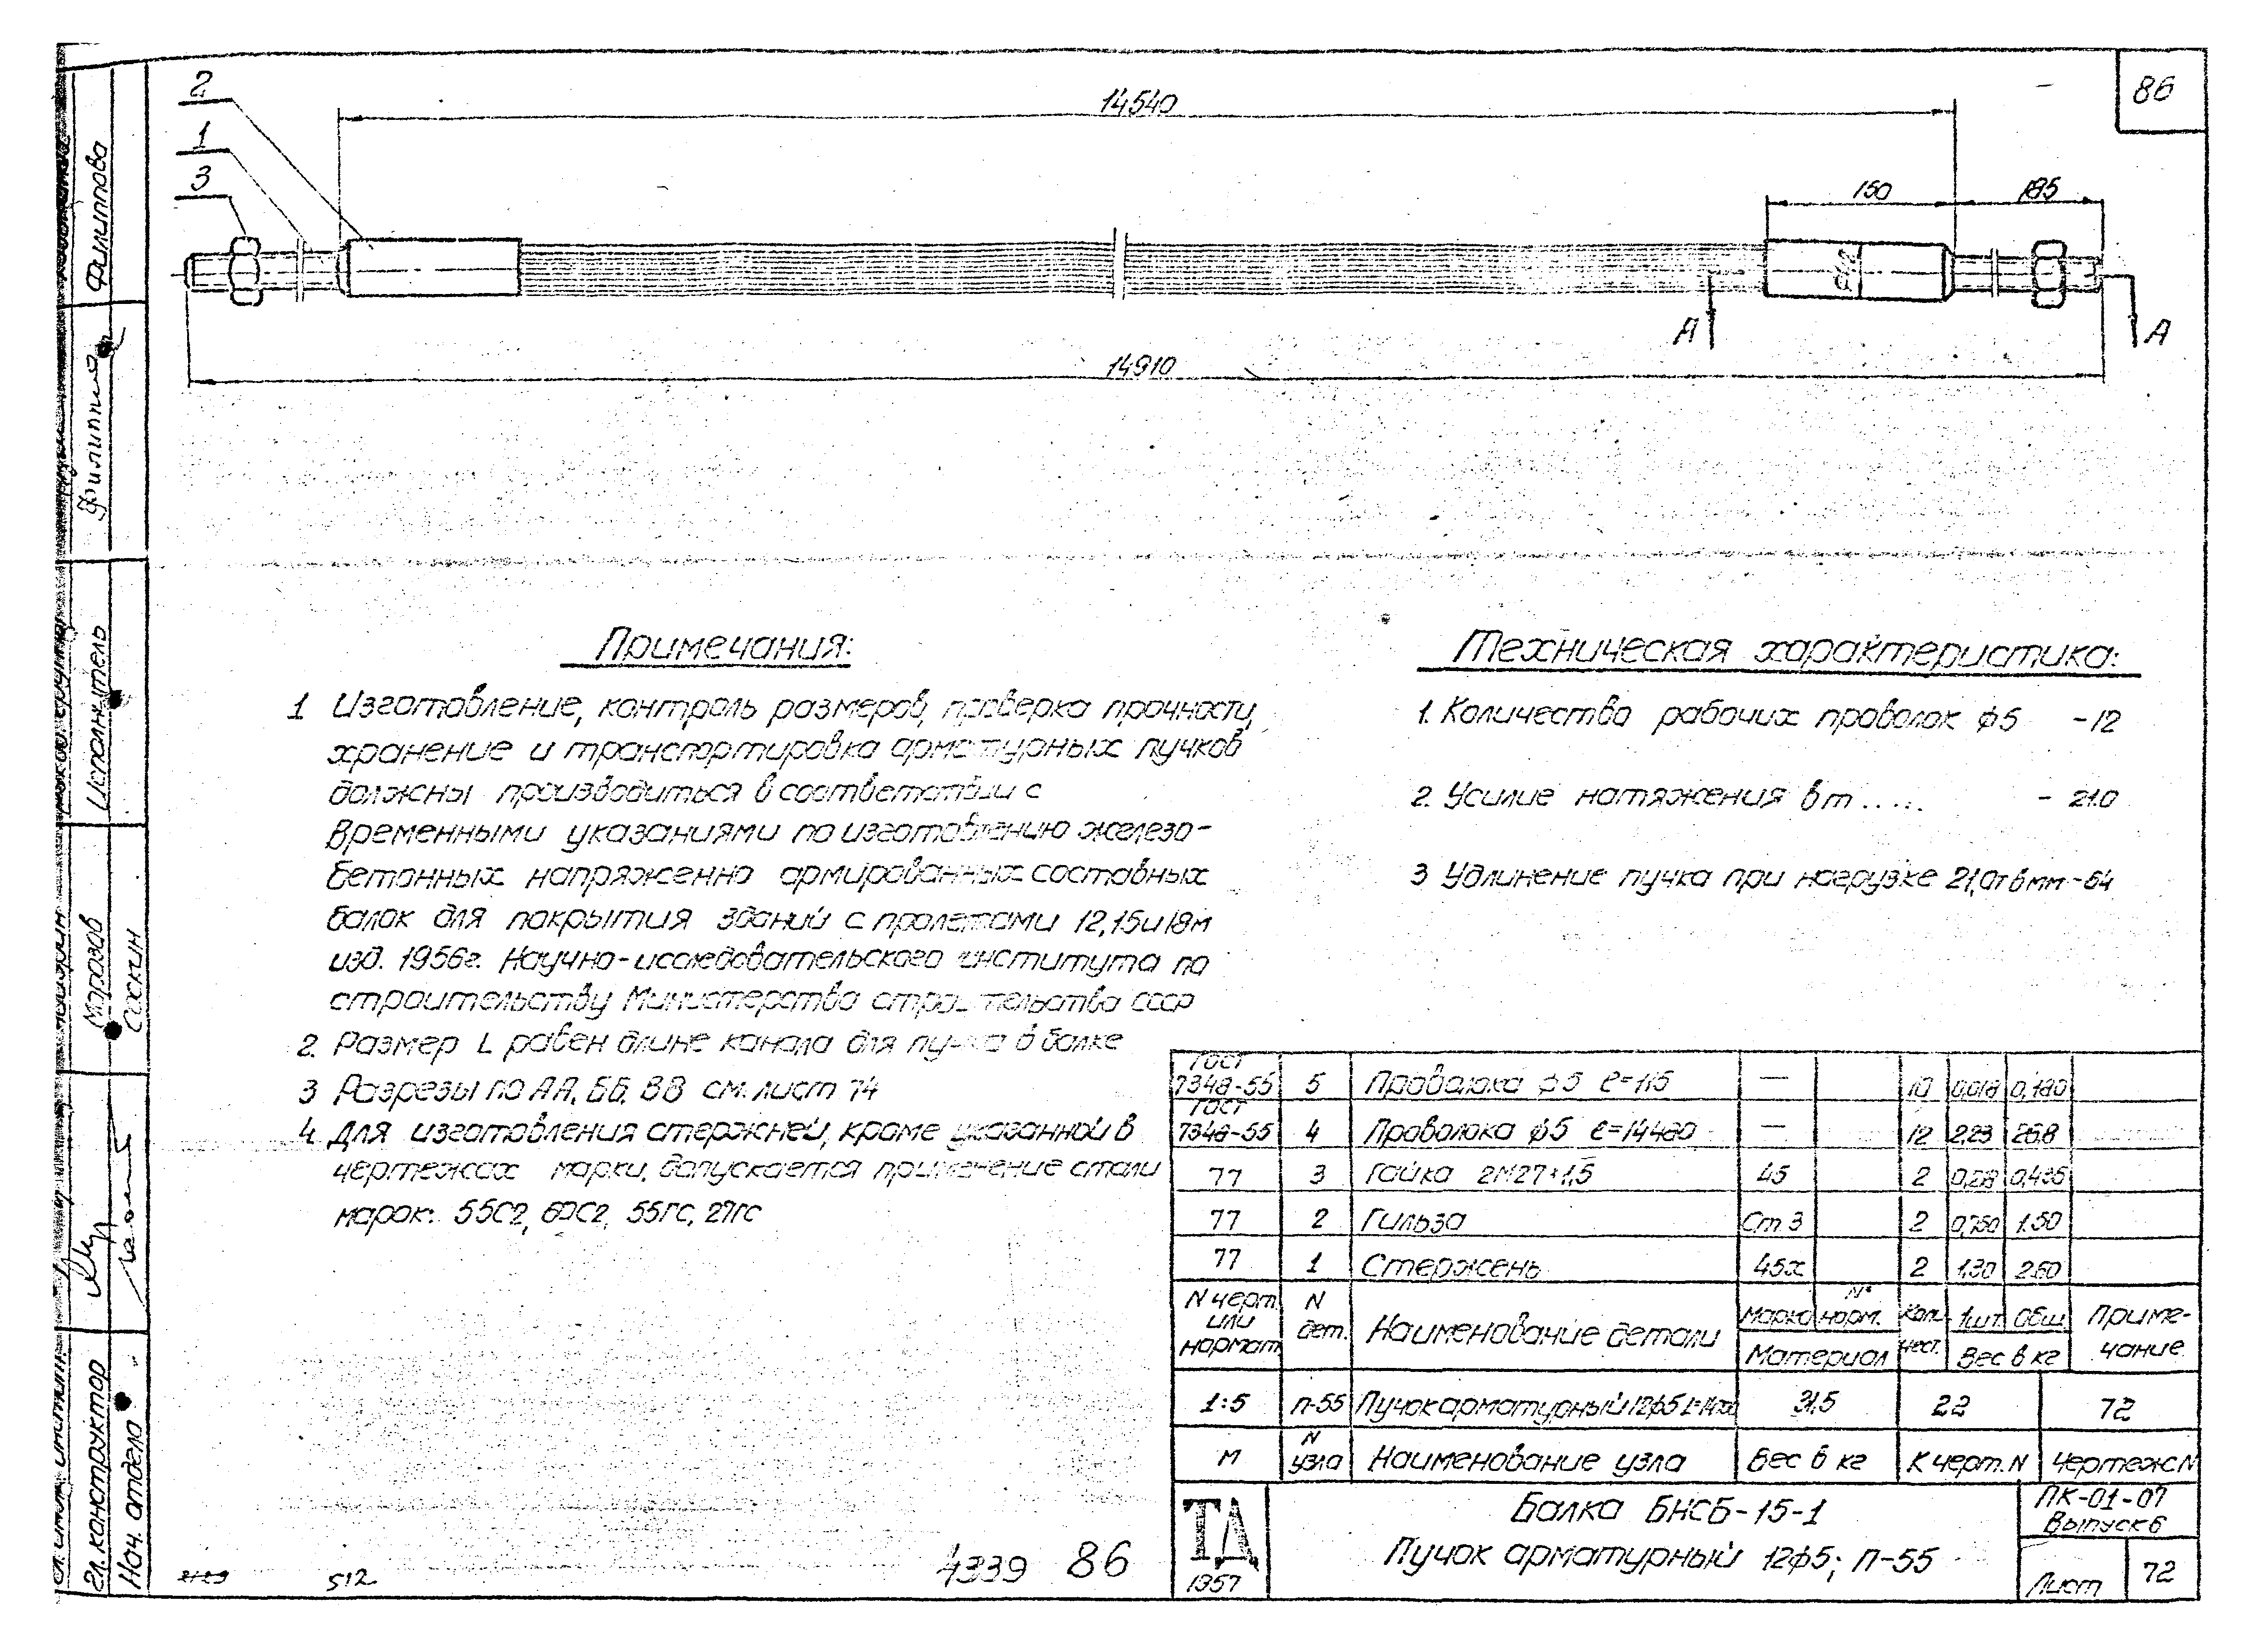 86
2
1
3
14540
150
185
А
А
14910
Примечания:
1 Изготовление, контроль размеров, проверка прочности,
хранение и транспортировка арматурных пучков
должны производиться в соответствии с
временными указаниями по изготовлению железо-
бетонных напряженно армированных составных
балок для покрытия зданий с пролетами 12, 15 и 18м
изд. 1956г. Научно-исследовательского института по
строительству Министерства строительства СССР
2. Размер L равен длине канала для пучка в балке
3 Разрезы по АА, ББ, ВВ см. лист 74
4. Для изготовления стержней, кроме указанной в
чертежах марки, допускается применение стали
марок: 55С2, 60С2, 55ГС, 27ГС
Техническая характеристика:
1. Количество рабочих проволок ф5 -12
2. Усилие натяжения в т ..... - 21.0
3 Удлинение пучка при нагрузке 21,0т в мм -64
ГОСТ 7348-55 5 Проволока ф5 ℓ=115 — 10 0,018 0,180
ГОСТ 7348-55 4 Проволока ф5 — 12 2,23 26.8
77 3 Гайка 2М27×1,5 45 2 0,435
77 2 Гильза Ст. 3 2 0,750 1.50
77 1 Стержень 45х 2 1,30 2.60
N черт. или нормат. N дет. Наименование детали Марка N° норм. Материал Коли- чест. 1шт. Общ. Вес в кг Приме- чание
1:5 П-55 Пучок арматурный 12ф5 31.5 22 72
М N узла Наименование узла Вес в кг К черт. N Чертеж N
ТД
1957
Балка БНСБ-15-1
Пучок арматурный 12ф5; П-55
ПК-01-07
Выпуск 6
Лист 72
4339 86
512
Филиппова
Исполнитель
Морозов
Соскин
Гл. конструктор
Нач. отдела